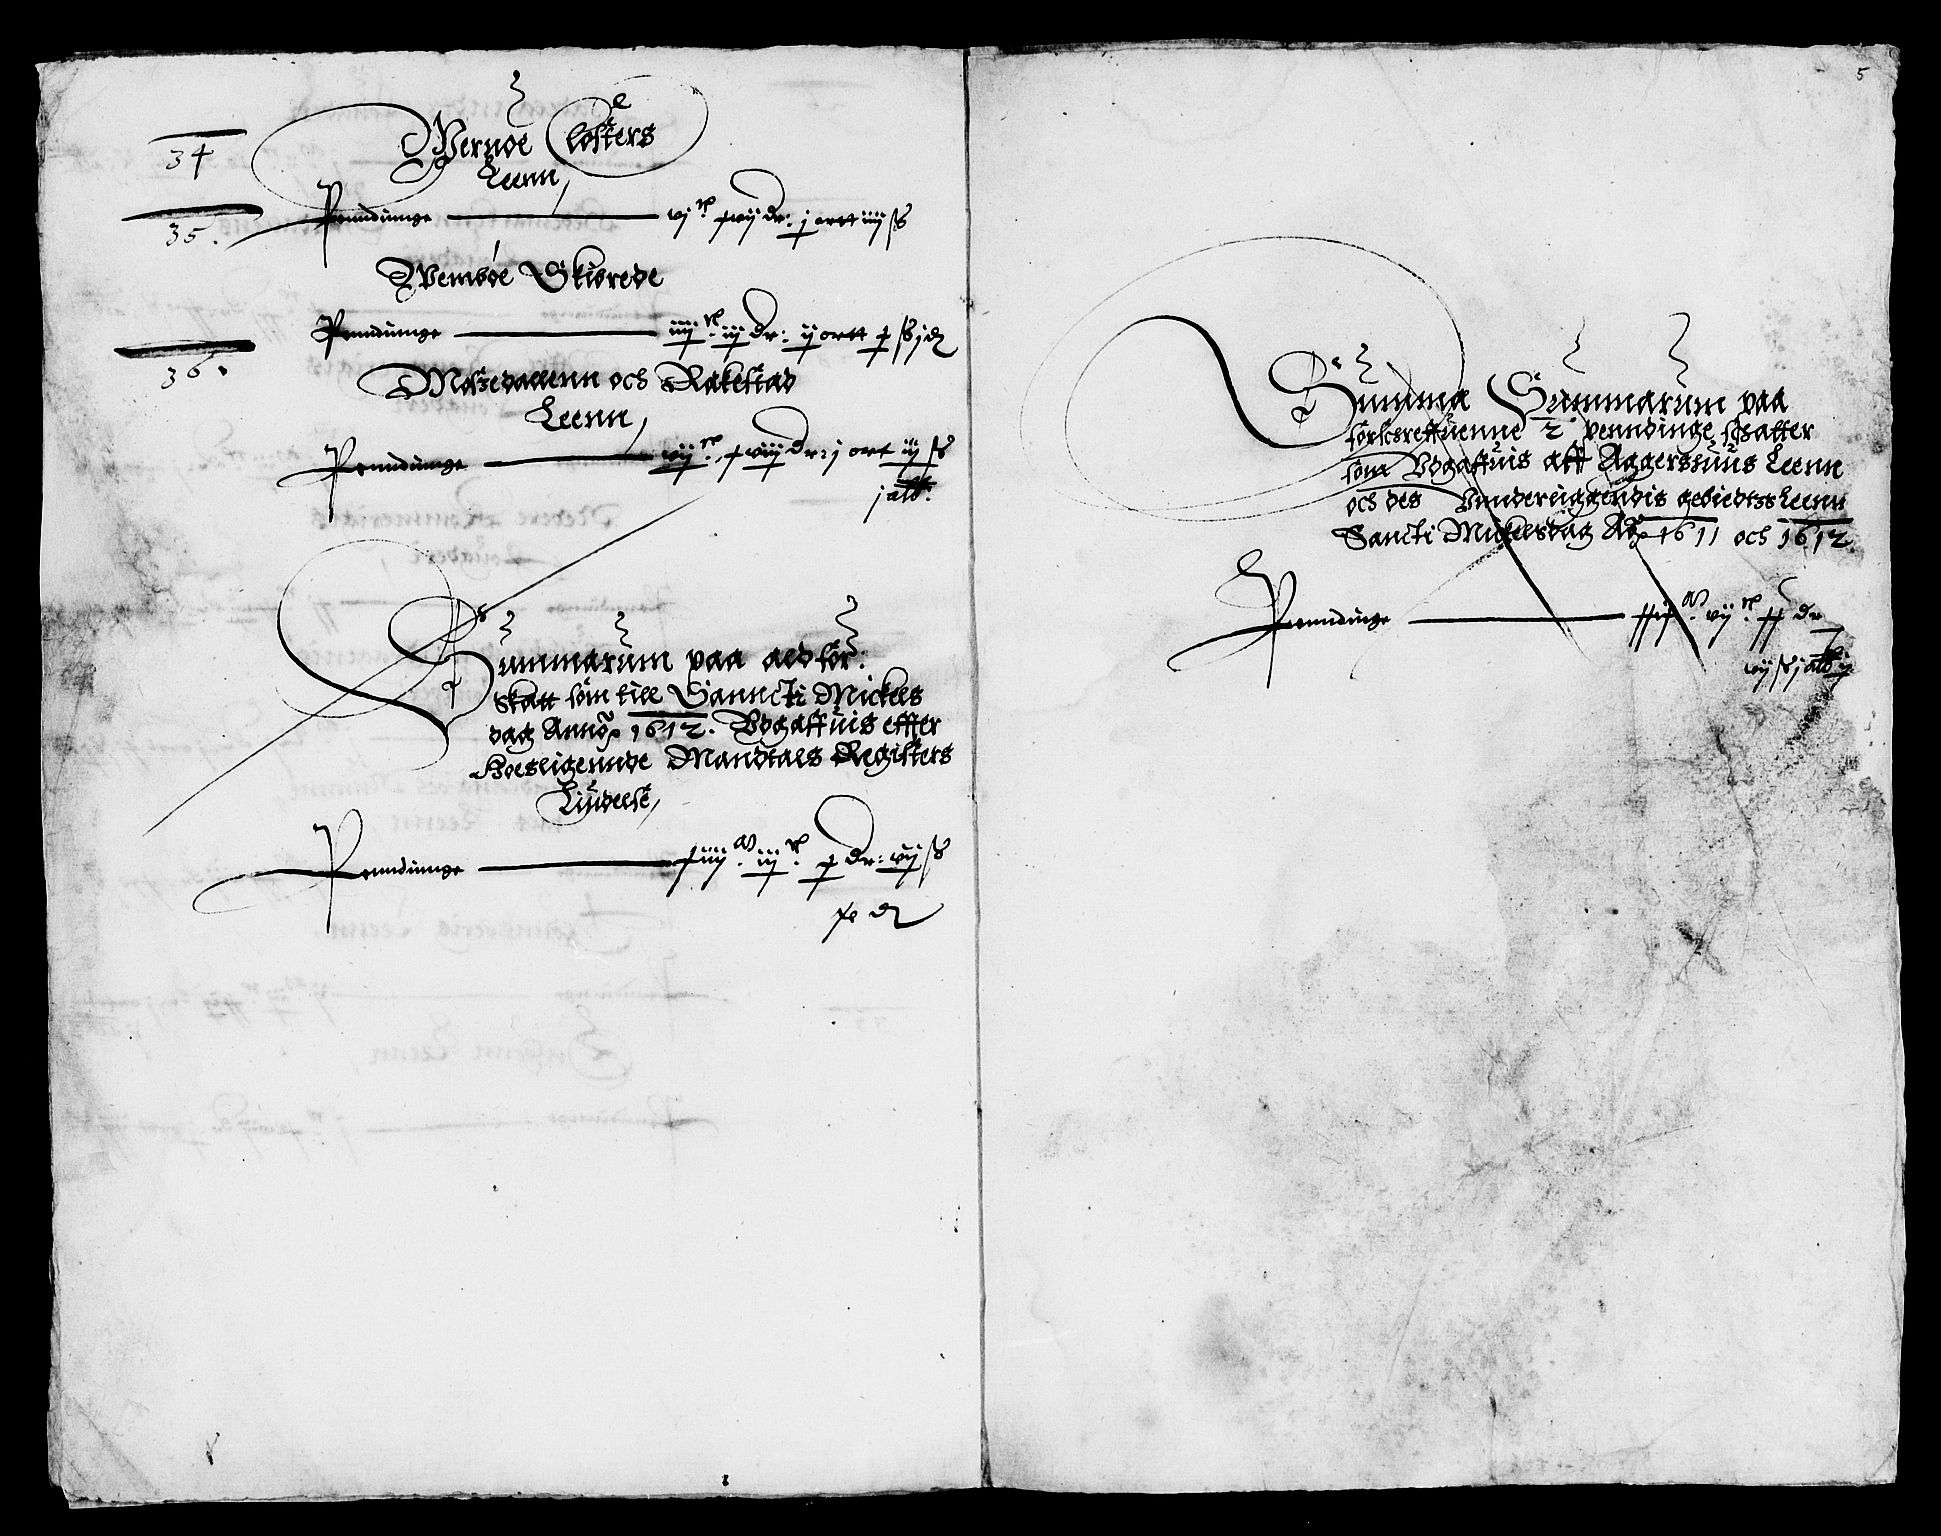 34
Wernøe Closters
Leenn
Penndiunge — vj c xvij dr: j ortt iiij ß
35.
Wembøe Skibrede
Penndiunge — iiij c iij dr: ij ortt x ß j d
36.
Mossedallenn och Rakestad
Leenn
Penndiunge — vij c xviij dr: j ort iij ß
j alb:
Summarum paa aldför:
Skatt som till Sanncti Mickels
dag Anno 1612. Vdgaffuis effter
Hoesligennde Mandtals Registers
Liudelse
Penndiunge — xiiij M iij c x dr: vij ß
d
5
Summa Summarum paa
forscreffuenne 2 penndinge schatter
som Vdgaffuis aff Aggershuus Leenn
och des Vnnderliggendis gebiedtss Leenn
Sancti Mickelsdag Ao 1611 och 1612.
Penndinge — M vij c xx dr
vij ß j alb